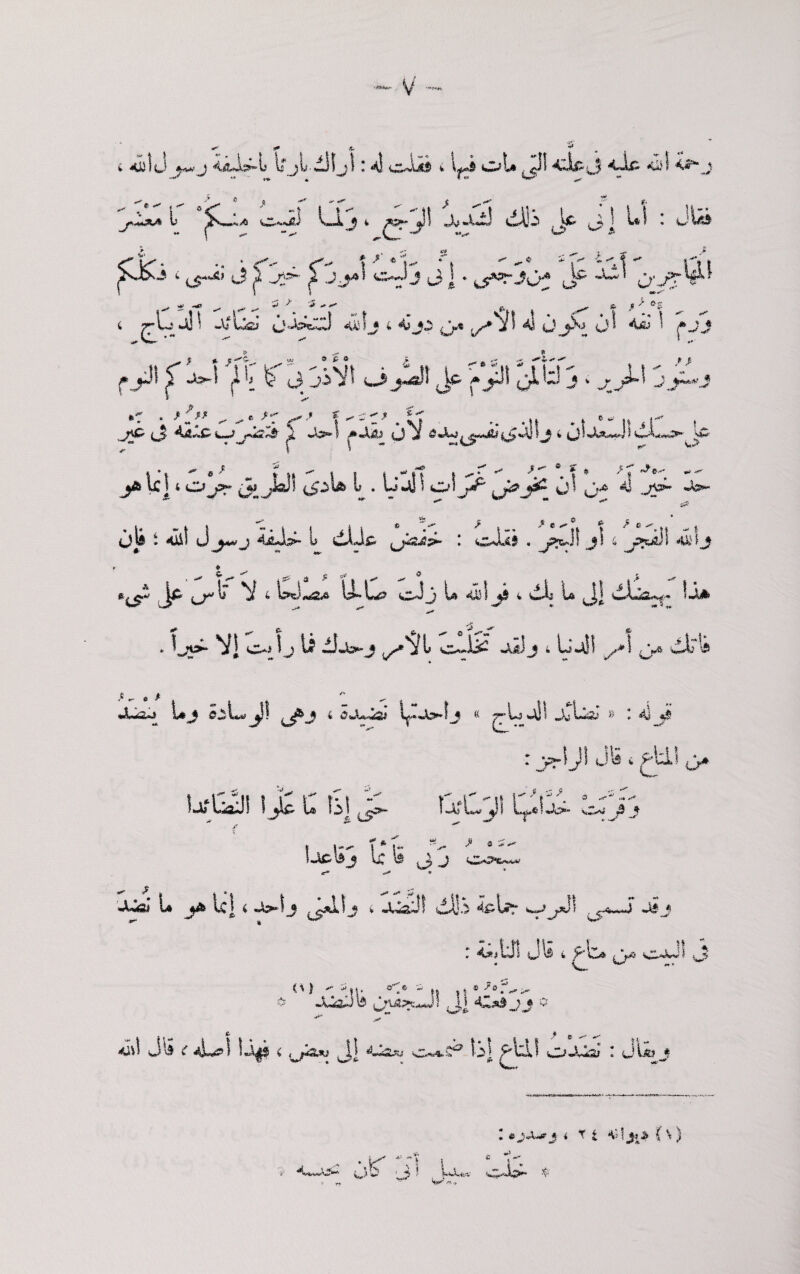 — ٧ —
رحمة الله عليه في علته التي مات فيها ، فقلت له : أراك بارئا يا خليفة رسول الله ،
فقال : أما إني على ذلك لشديد الوجع ، ولما لقيت منكم يا معشر
المهاجرين أشد علي من وجعي . إني وليت أموركم خيركم في نفسي ، فكلكم
ورم أنفه أن يكون له الأمر من دونه ، والله لتتخذن نضائد الديباج ،
وستور الحرير ، ولتألمن النوم على الصوف الأذربي كما يألم أحدكم النوم
على حسك السعدان ، والذي نفسي بيده لأن يقدم أحدكم فتضرب عنقه في غير
حد خير له من أن يخوض غمرات الدنيا . يا هادي الطريق جرت ، إنما هو
والله الفجر أو البجر . فقلت : خفض عليك يا خليفة رسول الله ؛ فإن
هذا يهيضك إلى ما بك ، فوالله ما زلت صالحا مصلحا ، لا تأس على شيء
فاتك من أمر الدنيا ، ولقد تخليت بالأمر وحدك فما رأيت إلا خيرا .
قوله : « نضائد الديباج » واحدتها نضيدة ، وهي الوسادة وما ينضد
من المتاع ، قال الراجز :
وقربت خدامها الوسائدا حتى إذا ما علوا النضائدا
سبحت ربي قائما وقاعدا
وقد تسمي العرب جماعة ذلك النضد ، والمعنى واحد ، إنما هو ما نضد
في البيت من متاع ، قال النابغة :
* ورفعته إلى السجفين فالنضد * (١)
ويقال : نضدت المتاع إذا ضممت بعضه إلى بعض ، فهذا أصله ، قال الله
(١) ديوانه ٢٤ ، وصدره :
* خلت سبيل أتي كان يحبسه *